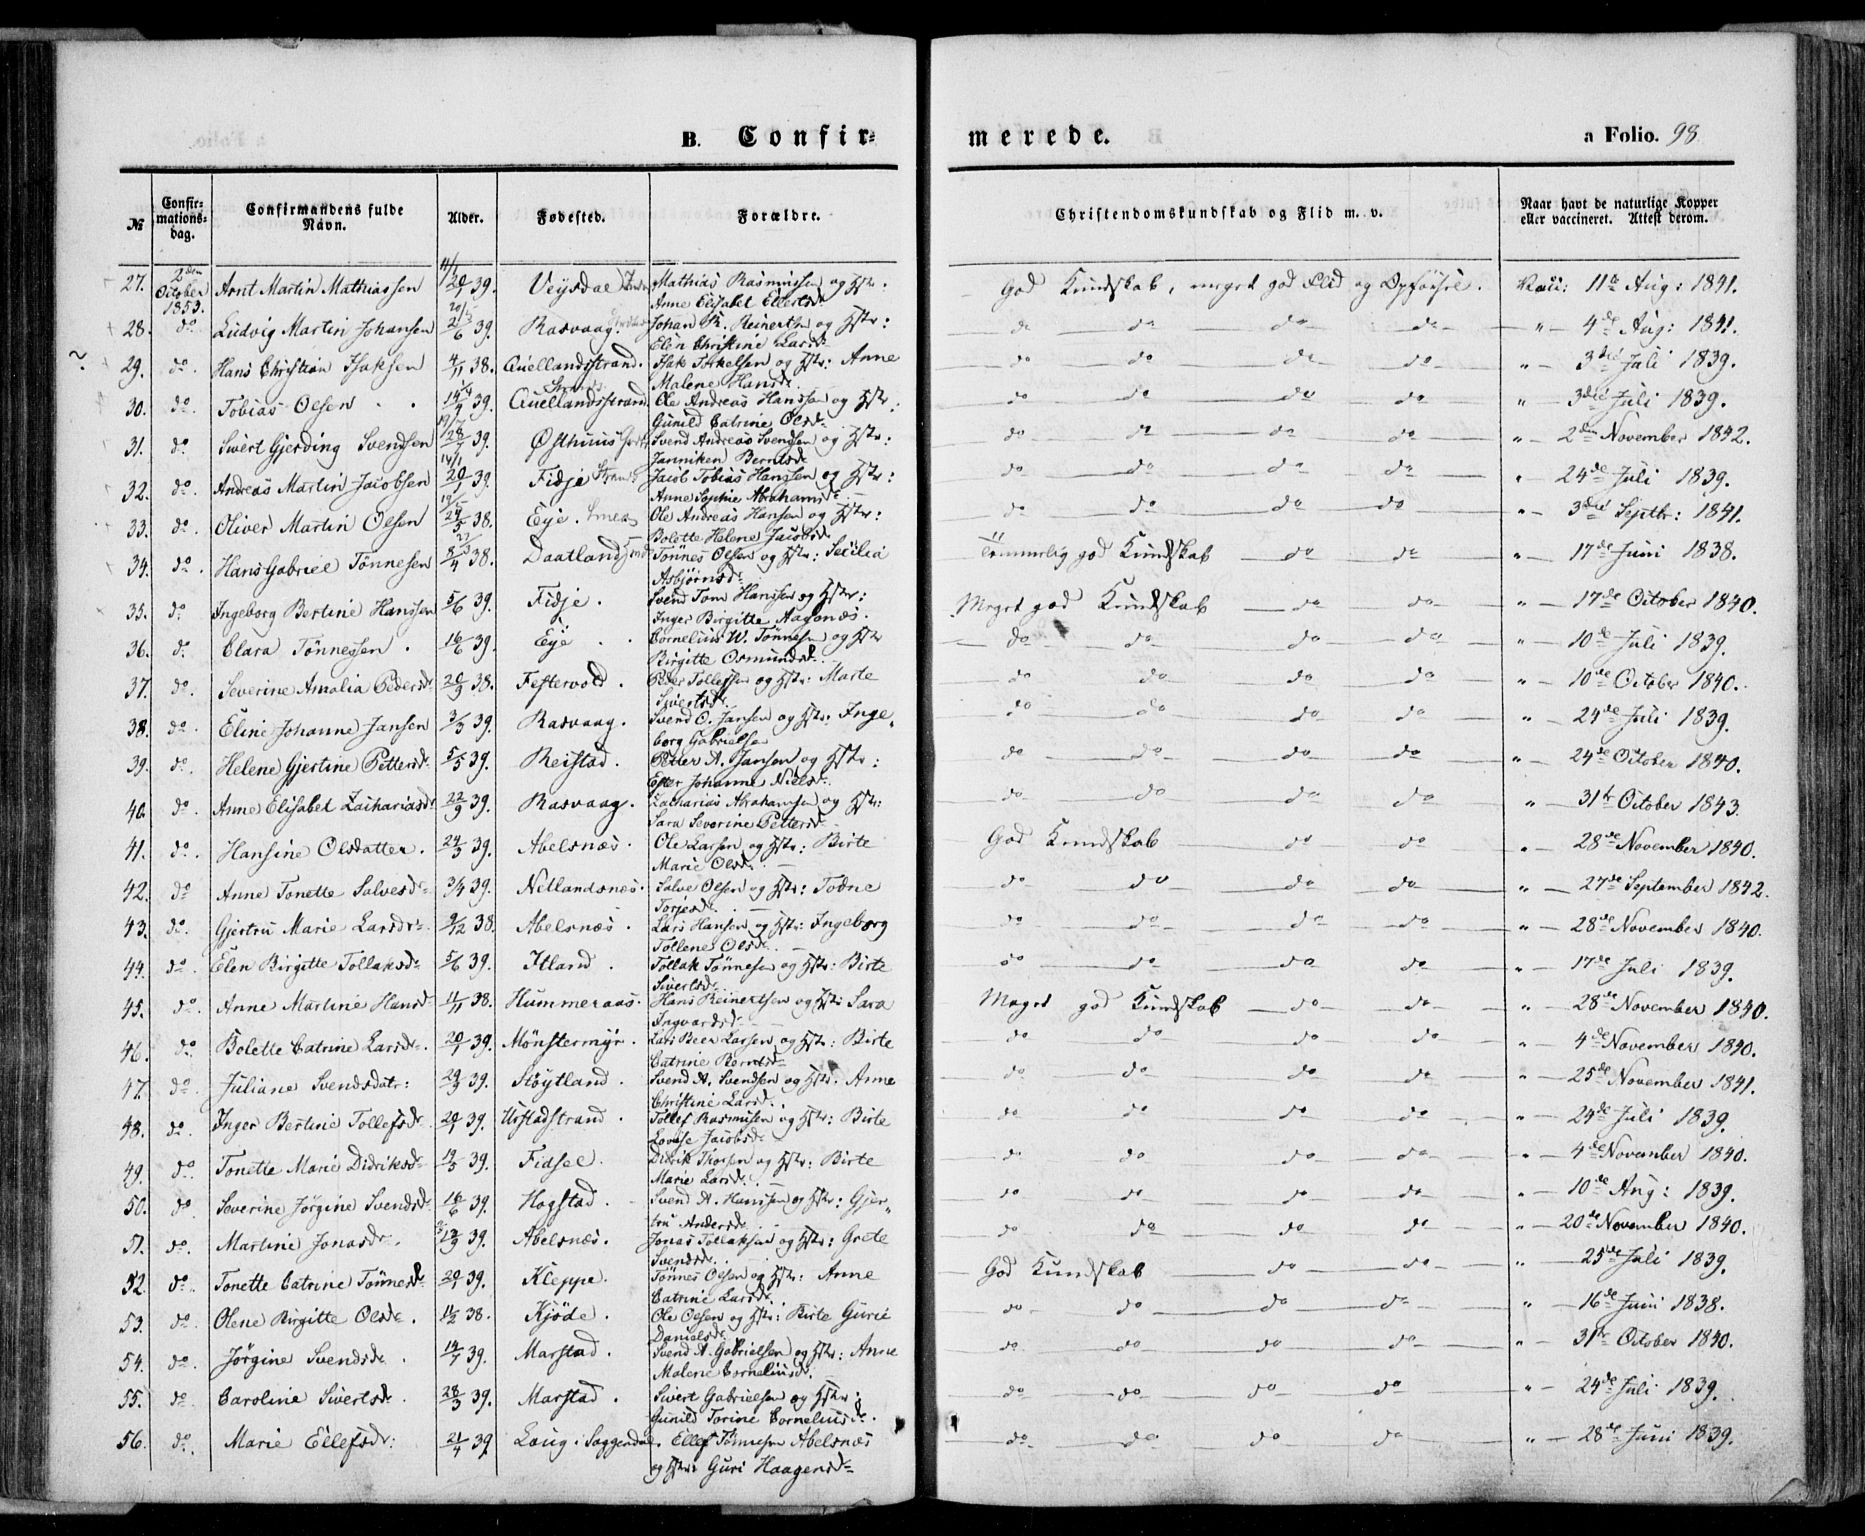 B. Confir-
merede.
a Folio. 98
№ Confir-mations-dag. Confirmandens fulde Navn. Alder. Fødested. Forældre. Christendomskundskab og Flid m. v. Naar havt de naturlige Kopper eller vaccineret. Attest derom.
27. 2den October 1853. Arnt Martin Mathiassen 20/ 39. Veisdal Mathias Rasmussen og Hstr. God Kundskab, meget god Flid og Opførsel. Vacc: 11te Aug: 1841.
Anne Elisabet Ellertsd.
28. do. Ludvig Martin Johansen 21/6 39. Rasvaag. Johan R. Reinerth og Hstr: do do do do " 4de Aug: 1841.
Elen Christine Larsd.
29. do. Hans Christian Isaksen 4/11 38. Quellandsstrand. Isak Torkelsen og Hstr: Anne do do do do " 3die Juli 1839.
Malene Hansd.
30. do. Tobias Olsen 14/4 39. Quellandsstrand Ole Andreas Hanssen og Hstr. do do do do " 3die Juli 1839.
Gunild Catrine Olsd.
31. do. Sivert Gjerding Svendsen 28/ 39. Østhuus Svend Andreas Svendsen og Hstr: do do do do " 2den November 1842.
Janniken Berntsd.
32. do. Andreas Martin Jacobsen 20/1 39 Fidje Strand Jacob Tobias Hanssen og Hstr: do do do do " 24de Juli 1839.
Anne Sophie Abrahamsd.
33. do. Oliver Martin Olsen 29/5 38. Eye. Ole Andreas Hansen og Hstr: do do do do " 3die Septbr: 1841.
Bolette Helene Jacobsd.
34. do. Hans Gabriel Tönnesen 8/4 38. Daatland Tönnes Olsen og Hstr: Secilia Temmelig god Kundskab do do " 17de Juni 1838.
Asbjørnsd.
35. do Ingeborg Bertine Hanssen 5/6 39. Fidje. Svend Tom Hanssen og Hstr: Meget god Kundskab do do " 17de October 1840.
Inger Birgitte Aagenæs.
36. do Clara Tönnessen. 16/6 39. Eye Cornelius W. Tönnesen og Hstr do do do do " 10de Juli 1839.
Birgitte Osmundsd.
37. do. Severine Amalia Pedersd. 20/9 38. Festervold. Peder Tollefsen og Hstr: Marte do do do do " 10de October 1840.
Sivertsd.
38. do. Eline Johanne Jansen 3/3 39. Rasvaag. Svend O. Jansen og Hstr: Inge- do do do do " 24de Juli 1839.
borg Gabrielsen
39. do. Helene Gjertine Pettersd. 5/5 39. Reistad. Petter A. Jansen og Hstr: do do do do " 24de October 1840.
Ester Johanne Nielsd.
40. do. Anne Elisabet Zachariasd. 22/9 39. Rasvaag. Zacharias Abrahamsen og Hstr: do do do do " 31te October 1843.
Sara Severine Pettersd.
41. do. Hansine Olsdatter. 24/3 39. Abelsnæs. Ole Larsen og Hstr: Birte God Kundskab do do " 28de November 1840.
Marie Olsd.
42. do Anne Tonette Salvesd. 3/4 39. Netlandsnes. Salve Olsen og Hstr: Todne do do do do " 27de September 1842.
Torjesd.
43. do. Gjertru Marie Larsd. 9/12 38. Abelsnæs. Lars Hansen og Hstr: Ingeborg do do do do " 28de November 1840.
Tollene Olsd.
44. do. Elen Birgitte Tollaksd. 5/6 39. Itland. Tollak Tönnesen og Hstr: Birte do do do do " 17de Juli 1839.
Sivertsd.
45. do. Anne Martine Hansd. 11/11 38. Hummeraas. Hans Reinertsen og Hstr: Sara Meget god Kundskab do do " 28de November 1840.
Ingvardsd.
46. do. Bolette Catrine Larsd. 20/1 39. Mönstermyr. Lars Beer Larsen og Hstr: Birte do do do do " 4de November 1840.
Catrine Berntsd.
47. do. Juliane Svendsdatr: 29/3 39. Støytland. Svend A. Svendsen og Hstr: Anne do do do do " 25de November 1841.
Christine Larsd.
48. do. Inger Bertine Tollefsd. 20/1 39. Urstadstrand. Tollef Rasmusen og Hstr: Birte do do do do " 24de Juli 1839.
Lovise Jacobsd.
49. do. Tonette Marie Didriksd. 19/5 39. Fidsel. Didrik Thorsen og Hstr: Birte do do do do " 4de November 1840.
Marie Larsd.
50. do. Severine Jörgine Svendsd. 16/6 39. Hogstad. Svend A. Hanssen og Hstr: Gjer- do do do do " 10de Aug: 1839.
tru Andersd.
51. do. Martine Jonasd. 12/9 39. Abelsnæs. Jonas Tollaksen og Hstr: Grete do do do do " 20de November 1840.
Svendsd.
52. do. Tonette Catrine Tönnesd. 20/1 39. Kleppe. Tönnes Olsen og Hstr: Anne God Kundskab do do " 25de Juli 1839.
Catrine Larsd.
53. do. Olene Birgitte Olsd. 11/2 38. Kjöde. Ole Olsen og Hstr: Birte Gurie do do do do " 16de Juni 1838.
Danielsd.
54. do. Jörgine Svendsd. 14/7 39. Marstad. Svend A. Gabrielsen og Hstr: Anne do do do do " 31te October 1840.
Malene Corneliusd.
55. do. Caroline Sivertsd. 28/3 39. Marstad. Sivert Gabrielsen og Hstr: do do do do " 24de Juli 1839.
Gunild Torine Corneliusd.
56. do. Marie Ellefsd: 21/4 39. Loug i Soggendal. Ellef Tönnesen Abelsnæs do do do do " 28de Juni 1839.
og Hstr: Guri Haagensd.